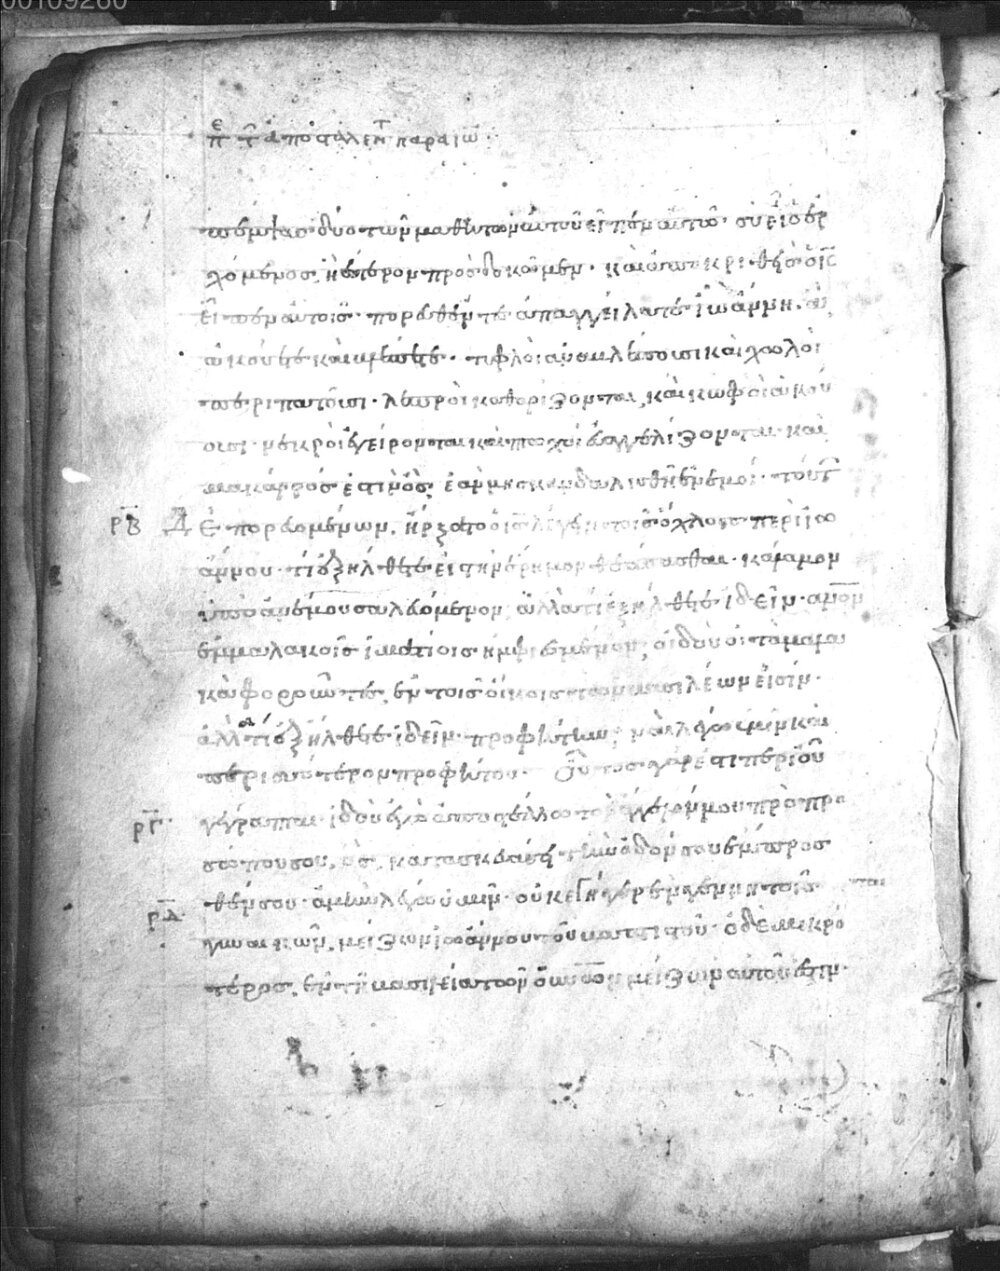 00109260
πε τ αποσταλεντ παρα ιω
πέμψας δύο τῶν μαθητῶν αὐτοῦ εἶπεν αὐτῶ· σὺ εἶ ὁ ἐρ
χόμενος, ἢ ἕτερον προσδοκῶμεν· καὶ ἀποκριθεὶς ὁ ις
εἶπεν αὐτοῖς· πορευθέντες ἀπαγγείλατε ἰωάννη, ἃ
ἀκούετε καὶ βλέπετε· τυφλοὶ ἀναβλέπουσι καὶ χωλοὶ
περιπατοῦσι· λεπροὶ καθαρίζονται, καὶ κωφοὶ ἀκού
ουσι· νεκροὶ ἐγείρονται καὶ πτωχοὶ εὐαγγελίζονται· καὶ
μακάριός ἐστιν ὃς ἐὰν μὴ σκανδαλισθῆ ἐν ἐμοί· τούτ
ρβ Δὲ πορευομένων, ἤρξατο ὁ ις λέγειν τοῖς ὄχλοις περὶ ἰω
άννου· τί ἐξήλθετε εἰς τὴν ἔρημον θεάσασθαι· κάλαμον
ὑπὸ ἀνέμου σαλευόμενον; ἀλλὰ τί ἐξήλθετε ἰδεῖν· ανον
ἐν μαλακοῖς ἱματίοις ἠμφιεσμένον; ἰδοὺ οἱ τὰ μαλα
κὰ φοροῦντες, ἐν τοῖς οἴκοις τῶν βασιλέων εἰσίν·
ἀλλὰ τί ἐξήλθετε ἰδεῖν· προφήτην; ναὶ λέγω ὑμῖν καὶ
περισσότερον προφήτου· Οὗτος γάρ ἐστι περὶ οὗ
ργ γέγραπται· ἰδοὺ ἐγὼ ἀποστέλλω τὸν ἄγγελόν μου πρὸ προ
σώπου σου, ὃς κατασκευάσει τὴν ὁδόν σου ἔμπροσ
ρδ θέν σου· ἀμὴν λέγω ὑμῖν· οὐκ ἐγήγερ ἐν γεννητοῖς ται
γυναικῶν, μείζων ἰωάννου τοῦ βαπτιστοῦ· ὁ δὲ μικρό
τερος, ἐν τῆ βασιλεία τῶν ουνων μείζων αὐτοῦ ἐστιν·